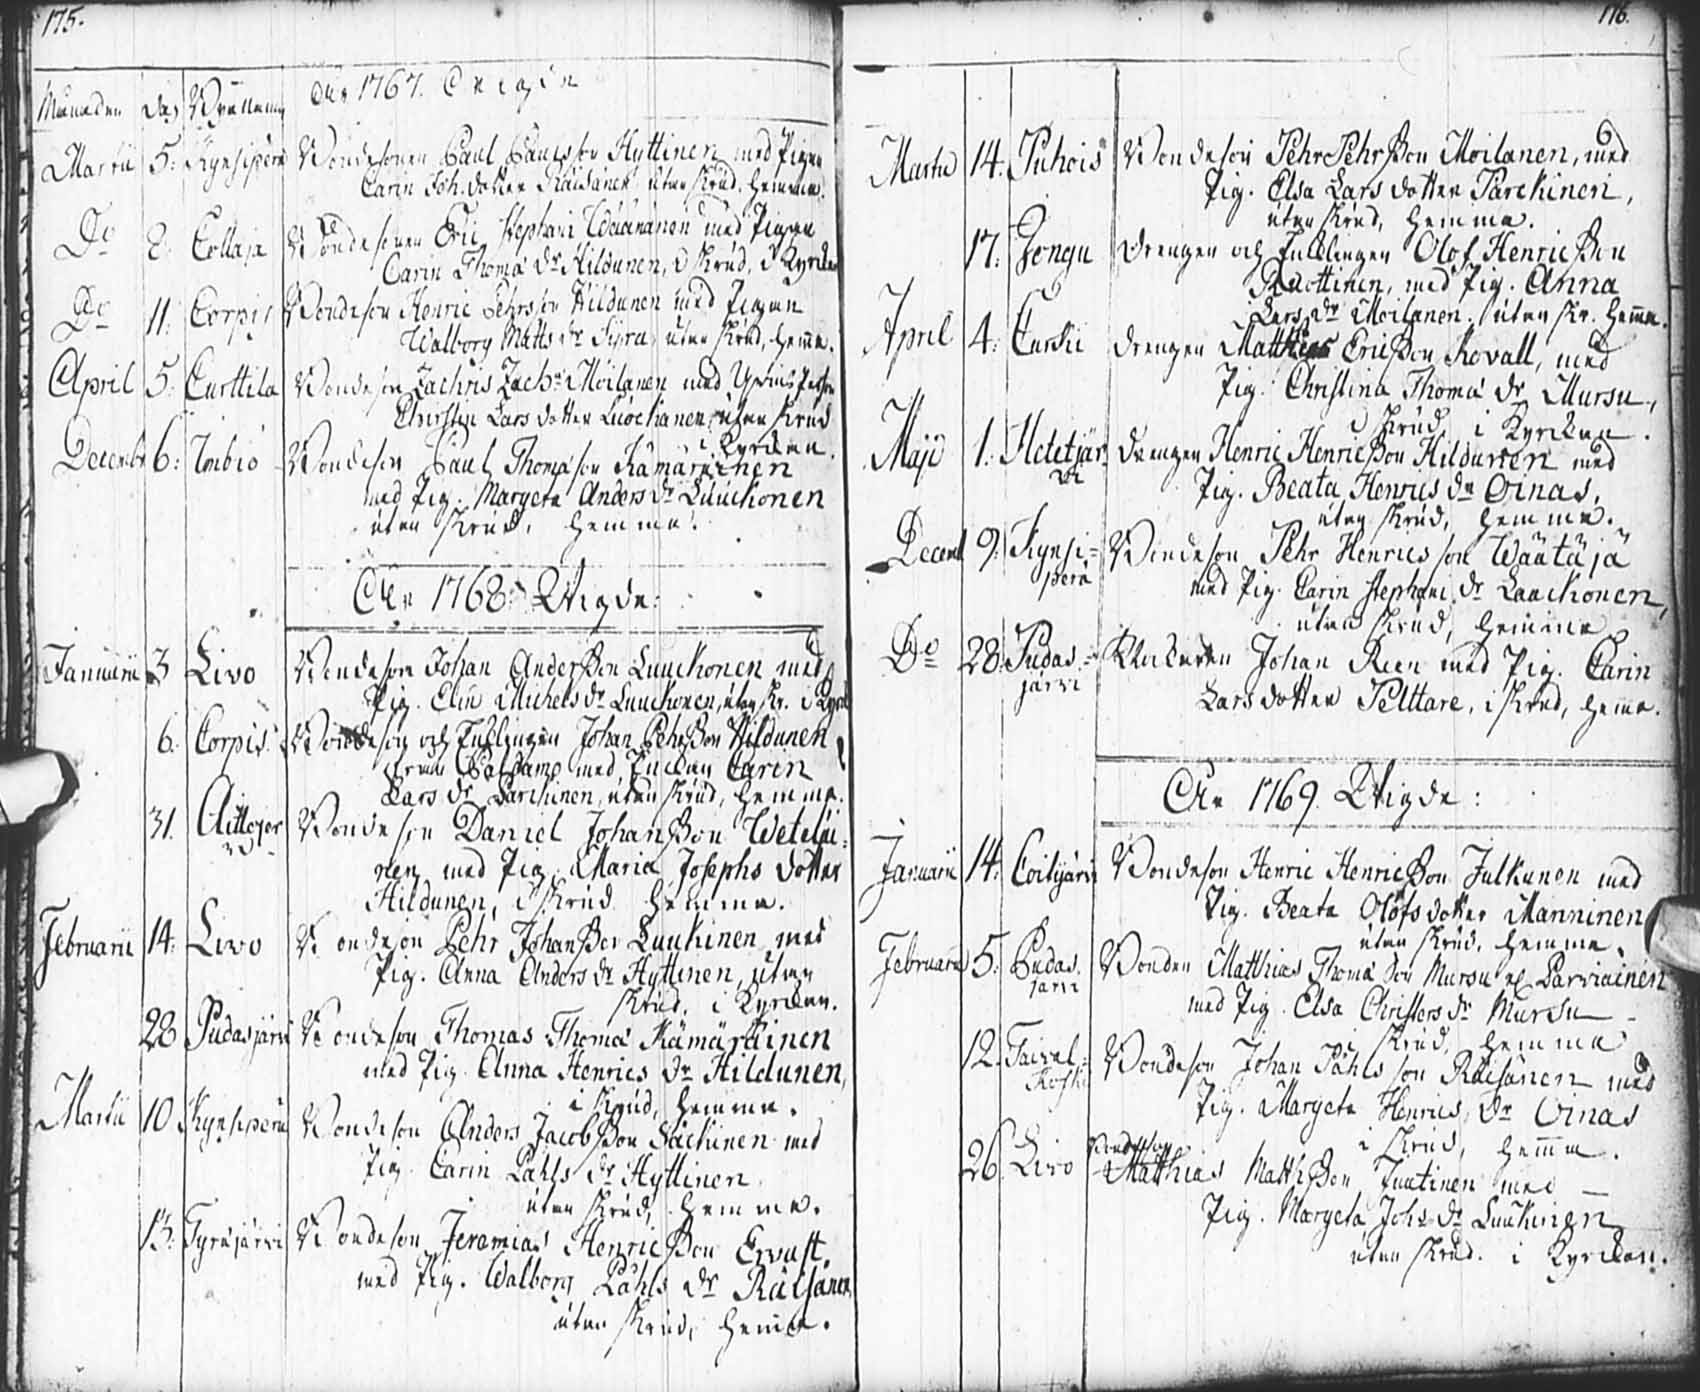 175.
År 1767. Vigde
Månaden Dag
Martii 5. Kynsiperä Bondesonen Paul Paulsson Hyttinen med Pigan
Carin Joh. dotter Räisänen utan Skrud, hemma.
Do 8. Collaja Bondesonen Eric Stephani Wäänänen med Pigan
Carin Thomæ dr Hildunen, i Skrud, i Kyrckan
Do 11. Corpis Bondeson Henric Pehrsson Hildunen med Pigan
Walborg Matts dr Syra, utan Skrud, hemma.
April 5. Curttila Bondeson Zachris Zach: Moilanen med
Christin Lars dotter Luockanen, utan Skrud
i Kyrckan.
Decembr 6. Imbio Bondeson Paul Thomæson Kämäräinen
med Pig. Margeta Anders dr Luuckonen
utan Skrud, hemma.
År 1768. Vigde:
Januarii 3 Livo Bondeson Johan Andersson Luuckonen med
Pig. Elin Michels dr Luuckonen, utan Skr. i Kyrck
6. Corpis. Bondeson och Inhysingen Johan Pehrsson Hildunen
från Paldamo med Enckan Carin
Lars dr Parckinen, utan Skrud, hemma.
31. Aittojärvi Bondeson Daniel Johansson Weteläi-
nen med Pig. Maria Josephs dotter
Hildunen, i Skrud hemma.
Februarii 14. Livo Bondeson Pehr Johansson Luukinen med
Pig. Anna Anders dr Hyttinen, utan
Skrud, i Kyrckan.
28 Pudasjärvi Bondeson Thomas Thomæ Kämäräinen
med Pig. Anna Henrics dr Hildunen,
i Skrud, hemma.
Martii 10. Kynsiperä Bondeson Anders Jacobsson Säckinen med
Pig. Carin Påhls dr Hyttinen
utan Skrud, hemma.
13. Syräjärvi Bondeson Jeremias Henricsson Ervast
med Pig. Walborg Påhls dr Räisänen
utan Skrud, hemma.
176.
Martii 14. Puhois Bondeson Pehr Pehrsson Moilanen, med
Pig. Elsa Lars dotter Parckinen,
utan Skrud, hemma.
17. Jongu Drengen och Inhysingen Olof Henricsson
Ruottinen, med Pig. Anna
Lars dr Moilanen. utan Skr. hemma.
April 4. Curki Drengen Matthias Ericsson Kovall, med
Pig. Christina Thomæ dr Mursu,
i Skrud i Kyrckan.
Maji 1. Hetetjär- Drengen Henric Henricsson Hildunen med
vi Pig. Beata Henrics dr Oinas,
utan Skrud, hemma.
Decemb 9. Kynsi- Bondeson Pehr Henricsson Wäätäjä
perä med Pig. Carin Stephani dr Laackonen,
utan Skrud, hemma
Do 28. Pudas- Klockaren Johan Reen med Pig. Carin
järvi Lars dotter Pelttare, i Skrud, hemma.
År 1769. Vigde:
Januarii 14. Coitijärvi Bondeson Henric Henricsson Julkunen med
Pig. Beata Olofs dotter Manninen
utan Skrud, hemma.
Februarii 5. Pudas- Bonden Matthias Thomæ son Mursu el. Parviainen
järvi med Pig. Elsa Christers dr Mursu
i Skrud, hemma
12. Taival- Bondeson Johan Påhls son Räisänen med
koski Pig. Margeta Henrics dr Oinas
i Skrud, hemma.
26. Livo Bondeson
Matthias Mattsson Juutinen med
Pig. Margeta Johs dr Luukinen
utan Skrud. i Kyrckan.